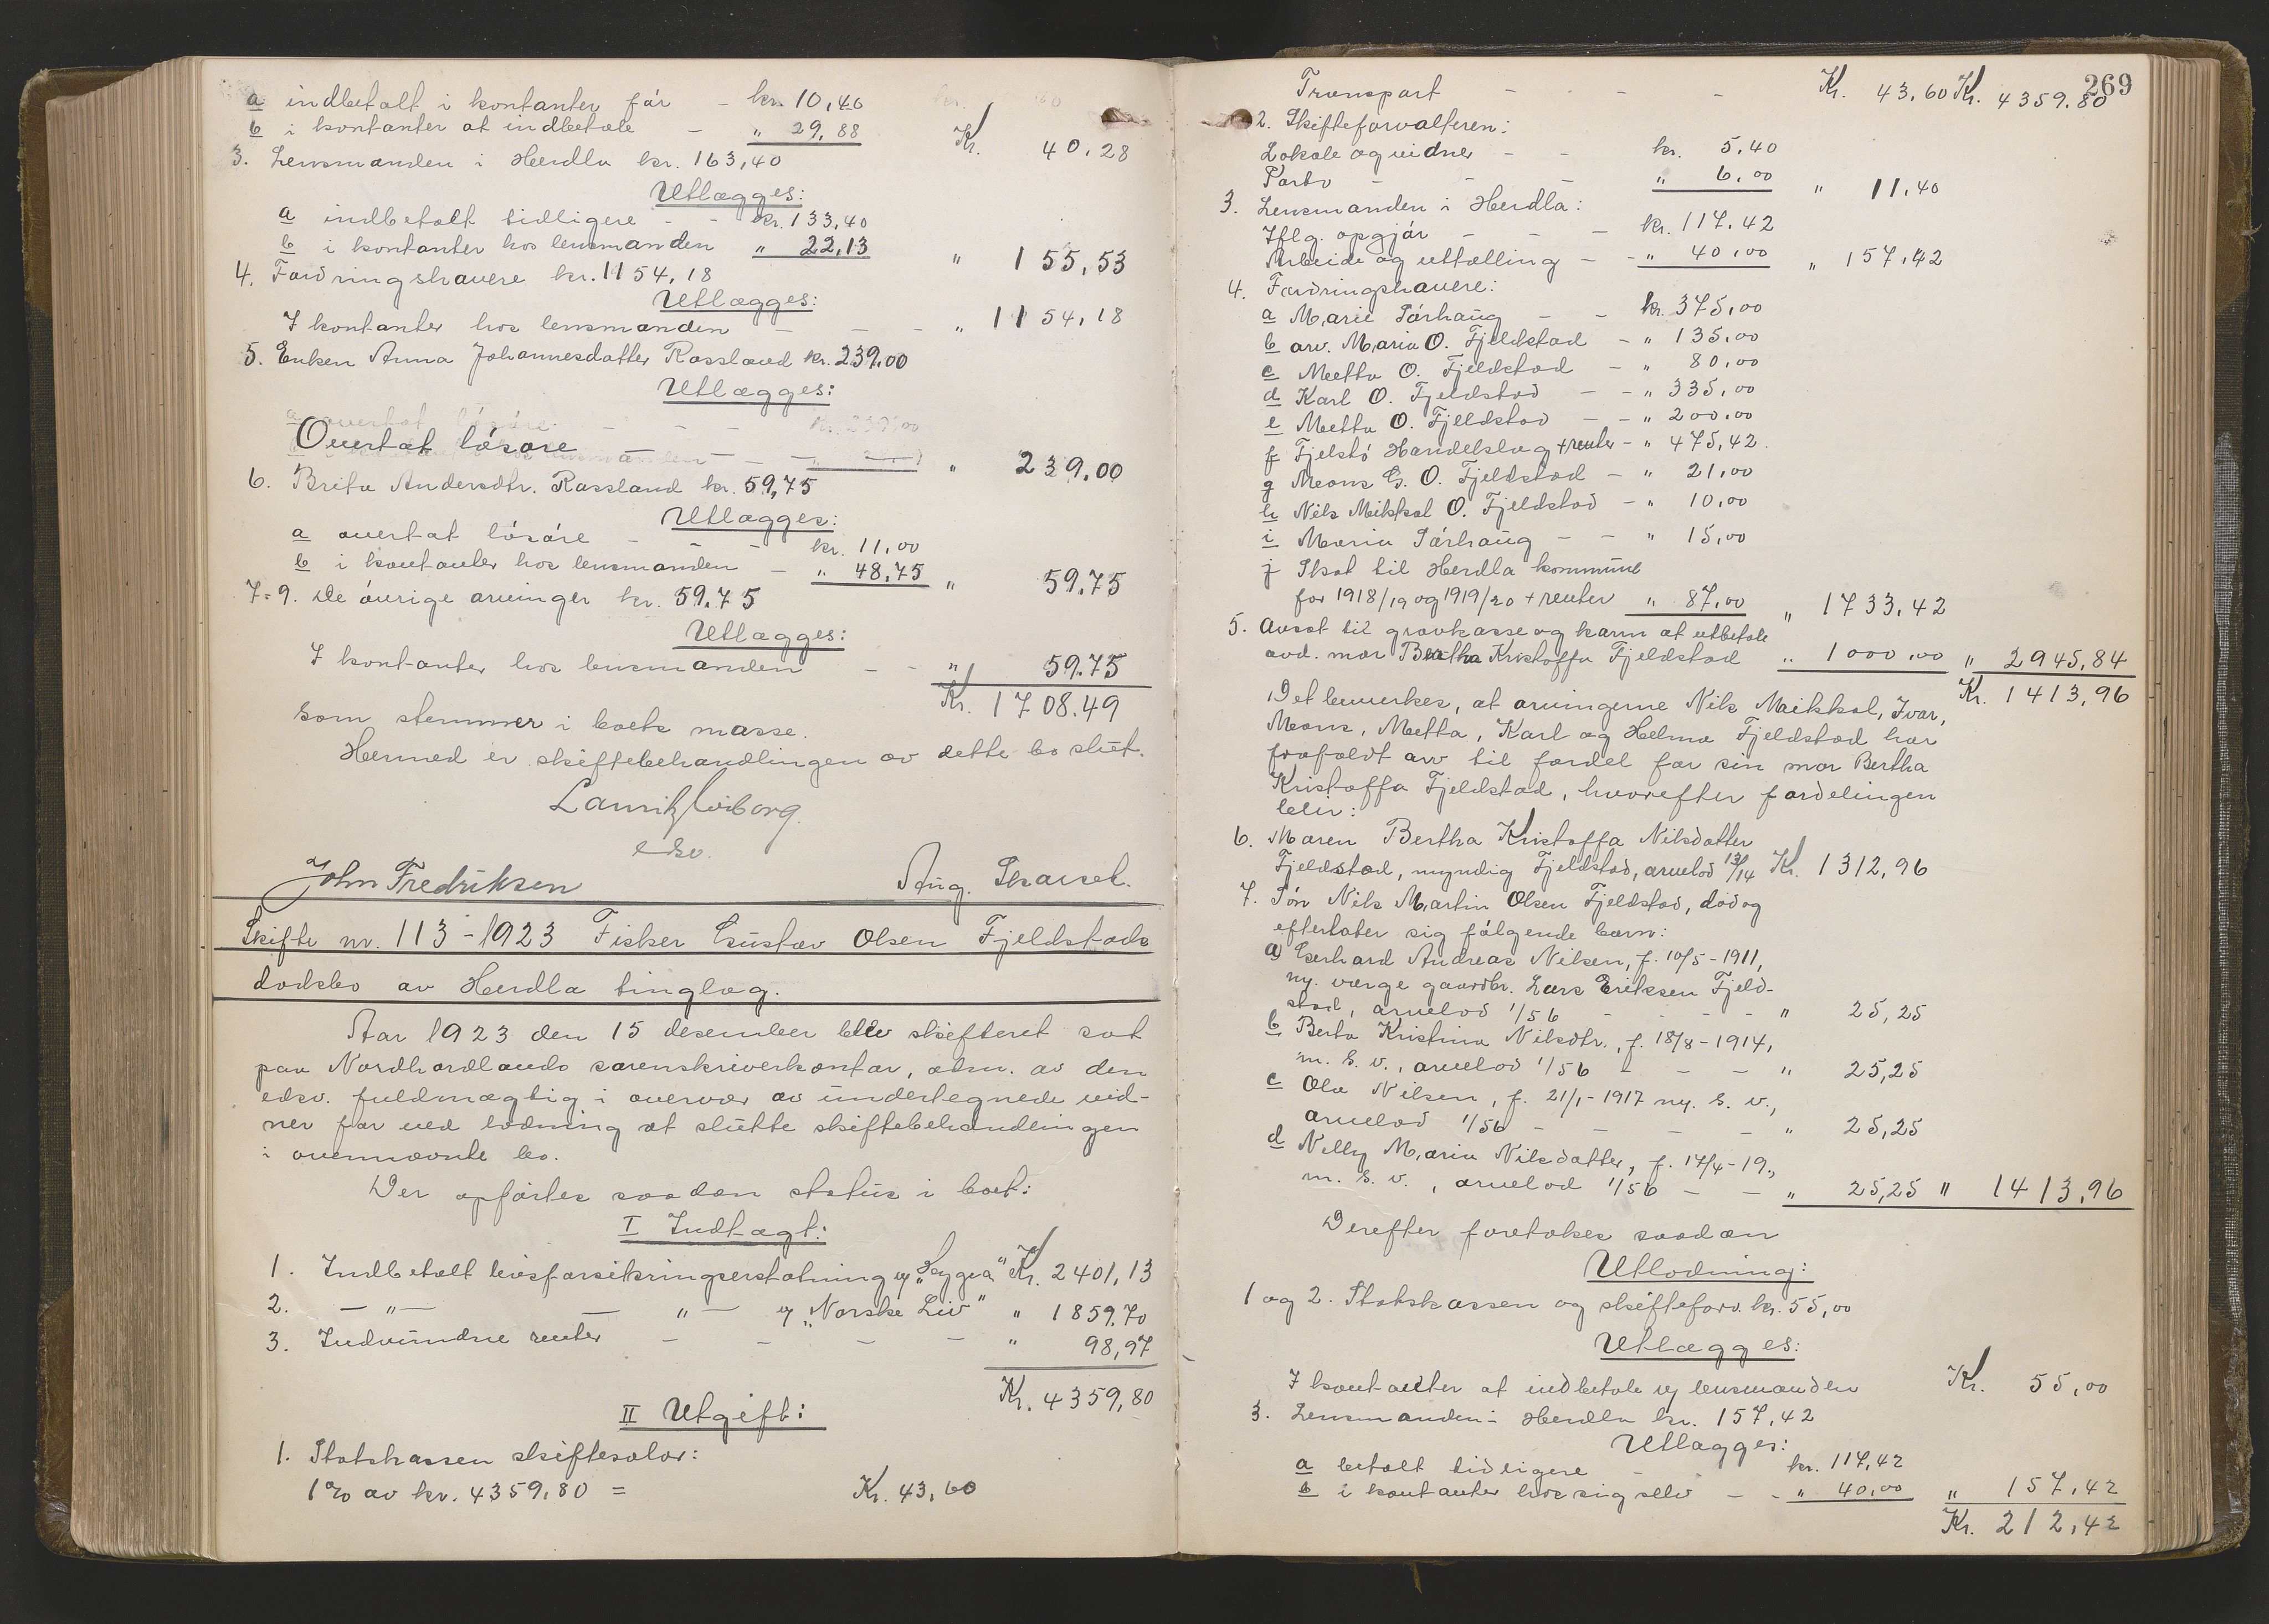 a indbetalt i kontanter før - kr. 10,40
b i kontanter at indbetale - " 29,88 Kr. 40,28
3. Lensmanden i Herdla kr. 163,40
Utlægges:
a indbetalt tidligere - - kr. 133,40
b i kontanter hos lensmanden " 22,13 " 155,53
4. Fordringshavere kr. 1154,18
Utlægges:
I kontanter hos lensmanden - - - " 1154,18
5. Enken Anna Johannesdatter Rossland kr. 239,00
Utlægges:
Overtat løsøre - - - " 239,00
6. Brita Andersdtr. Rossland kr. 59,75
Utlægges:
a overtat løsøre - - - kr. 11,00
b i kontanter hos lensmanden - " 48,75 " 59,75
7-9. De øvrige arvinger kr. 59,75
Utlægges:
I kontanter hos lensmanden - - " 59,75
Kr. 1708,49
som stemmer i boets masse.
Hermed er skiftebehandlingen av dette bo slut.
Lauritz Wiborg.
edsv.
John Fredriksen Aug. Skarsel.
Skifte nr. 113 - 1923 Fisker Gustav Olsen Fjeldstads
dødsbo av Herdla tinglag.
Aar 1923 den 15 desember blev skifteret sat
paa Nordhordlands sorenskriverkontor, adm. av den
edsv. fuldmægtig i overvær av undertegnede vid-
ner for ved lodning at slutte skiftebehandlingen
i ovennævnte bo.
Der opførtes saadan status i boet:
I Indtægt:
1. Indbetalt livsforsikringserstatning ved "Gygea" Kr. 2401,13
2. - " - - " - ved "Norske Liv" " 1859,70
3. Indvundne renter - - - - " 98,97
Kr. 4359,80
II Utgift:
1. Statskassen skiftesalær:
1% av kr. 4359,80 = Kr. 43,60
269
Transport - - - Kr. 43,60 Kr. 4359,80
2. Skifteforvalteren:
Lokale og vidner - - kr. 5,40
Porto - - - " 6,00 " 11,40
3. Lensmanden i Herdla:
Iflg. opgjør - - - kr. 117,42
Arbeide og uttælling - - " 40,00 " 157,42
4. Fordringshavere:
a Marie Tørhaug - - kr. 375,00
b arv. Maria O. Fjeldstad - " 135,00
c Metta O. Fjeldstad - " 80,00
d Karl O. Fjeldstad - - " 335,00
e Metta O. Fjeldstad - - " 200,00
f Fjelstø Handelslag + renter - " 475,42
g Mons G. O. Fjeldstad - " 21,00
h Nils Mikkal O. Fjeldstad - " 10,00
i Maria Tørhaug - - " 15,00
j Skat til Herdla kommune
for 1918/19 og 1919/20 + renter " 87,00 " 1733,42
5. Avsat til gravkasse og karm at utbetale
avd. mor Bertha Kristoffa Fjeldstad " 1000,00 " 2945,84
Kr. 1413,96
Det bemerkes, at arvingerne Nils Meikkal, Ivar,
Mons, Metta, Karl og Helma Fjeldstad har
frafaldt arv til fordel for sin mor Bertha
Kristoffa Fjeldstad, hvorefter fordelingen
blir:
6. Moren Bertha Kristoffa Nilsdatter
Fjeldstad, myndig Fjeldstad, arvelod 13/14 Kr. 1312,96
7. Søn Nils Martin Olsen Fjeldstad, død og
efterlater sig følgende barn:
a) Gerhard Andreas Nilsen, f. 10/5-1911,
ny. værge gaardbr. Lars Eriksen Fjeld-
stad, arvelod 1/56 - - - - " 25,25
b Berta Kristina Nilsdtr., f. 18/8-1914,
m. s. v., arvelod 1/56 - - - " 25,25
c Ola Nilsen, f. 21/1-1917 ny. s. v.,
arvelod 1/56 - - - - " 25,25
d Nelly Maria Nilsdatter, f. 17/4-19.,
m. s. v., arvelod 1/56 - - " 25,25 " 1413,96
Derefter foretokes saadan
Utlodning:
1 og 2. Statskassen og skifteforv. kr. 55,00
Utlægges:
I kontanter at indbetale ved lensmanden Kr. 55,00
3. Lensmanden i Herdla kr. 157,42
Utlægges:
a betalt tidligere - kr. 117,42
b i kontanter hos sig selv - - " 40,00 " 157,42
Kr. 212,42